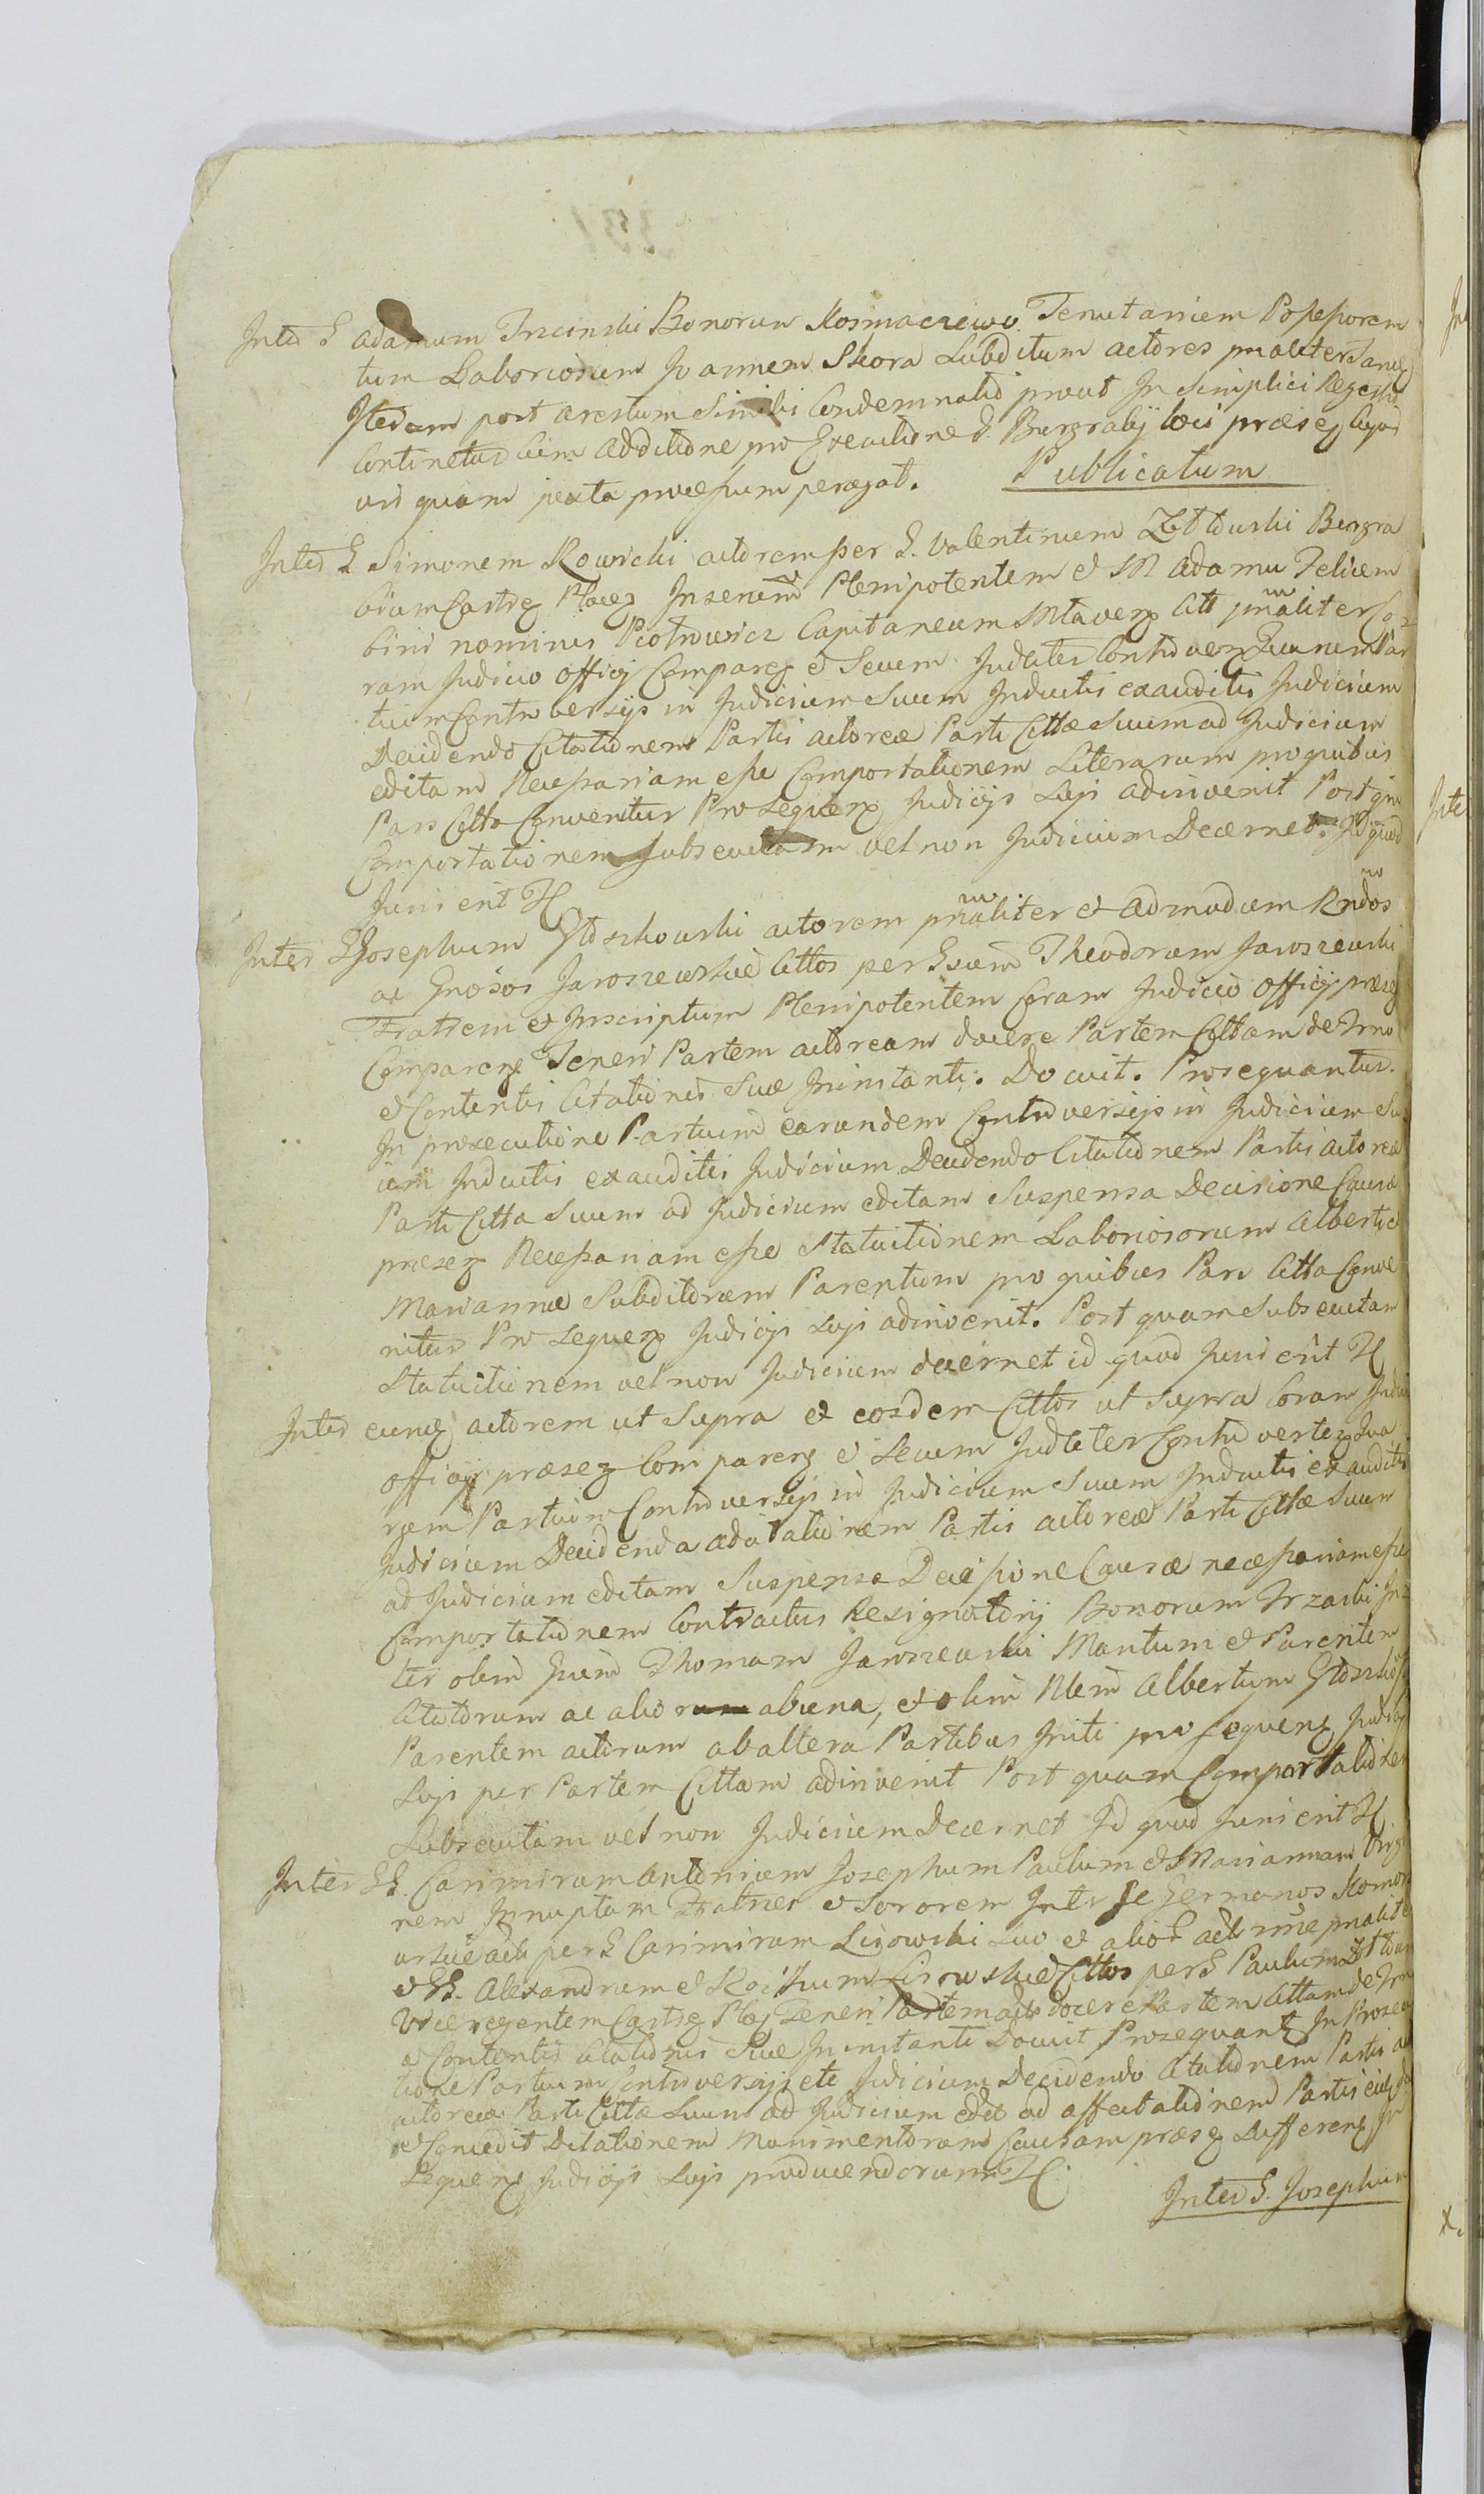 Inter G Adamum Trzcinski Bonorum Kosmaczewo Tenutarium Possessorem
tum Laboriosum Joannem Skora Subditum actores pnaliter
Itedum post arestum Simili Condemnatio prout In Simplici Regestro
Continetur Cum additione pro Executione G. Burgrabij loci præseq
uti quam juxta processum peragat. Publicatum
Inter G Simonem Rowicki actorem per G. Valentinum Burgra
bium Castreq Ploceq Inserium Plenipotentem et M Adamu Felicem
bini nominis Piotrowicz Capitaneum Mlaveq Citt pnaliter Co
ram Judicio Officij Compareq et Secum Judliter Controverq Quarum Par
tium Controversijs in Judicium Suum Inductis exauditis Judicium
Decidendo Citationem Partis actoreæ Parti Cittæ Suum ad Judicium
editam Necessariam esse Comportationem Literarum pro quibus
Pars Citta Convenitur Pro Sequeq Judicijs Lijs adinvenit Post qm
Comportationem Subsecutam vel non Judicium Decernet. Id quod
Juris erit H
Inter G Josephum actorem pnaliter et Admodum Rndos
ac Gnosos Jaroszewskie Cittos per Gsum Theodorum Jaroszewski
Fratrem et Inscriptum Plenipotentem Coram Judicio Officij præseq
Compareq Teneri Partem actoream docere Partem Cittam de Trno
et Contentis Citationis Suæ In instanti. Docuit. Prosequantur.
In prosecutione Partium earundem Controversijs in Judicium Su
um Inductis exauditis Judicium Decidendo Citationem Partis actoreæ
Parti Citta Suum ad Judicium editam Suspensa Decisione Causæ
præseq Necessariam esse Statuitionem Laboriosorum Alberti et
Mariannæ Subditorum Parentum pro quibus Pars Citta Conve
nitur Pro Sequeq Judicijs Lijs adinvenit. Post quam Subsecutam
Statuitionem vel non Judicium decernet id quod Juris erit H
Inter eunq actorem ut Supra et eosdem Cittos ut Supra Coram Judicio
officij præseq Compareq et Secum Judliter Controverteq Qua
rum Partium Controversijs in Judicium Suum Inductis exauditis
Judicium Decidenda Partis actoreæ Parti Cittæ Suum
ad Judicium editam Suspensa Decissione Causæ necessariam esse
Comportationem Contractus Resignatorij Bonorum Trzaski In
ter olim Thomam Jaroszewski Maritum et Parentem
Citatorum ac aliorum abuna, et olim Nlem Albertum
Parentem actorum ab altera Partibus Initi pro Sequeq Judicijs
Lijs per Partem Cittam adinvenit Post quam Comportationem
Subsecutam vel non Judicium Decernet Id quod Juris erit H
Inter GG. Casimirum Antonium Josephum Paulum et Mariannam Virgi
nem Innuptam Fratres et Sororem Inter Se Germanos Komor
owskie acts per G Casimirum Lisowski Suo et alior actrum nne pnaliter
et GG. Alexandrum et Rochum Lisowskie Cittos per G Paulum
Viceregentem Castreq Ploq Teneri Partem acts docere Partem Cittam de Trno
et Contentis Citationis Suæ In instanti Docuit Prosequantq In Prosecu
tione Partium Controversijs etc Judicium Decidendo Citationem Partis ac
actoreæ Parti Cittæ Suum ad Judicium edit ad affectationem Partis
et Concedit Dilationem Munimentorum Causam præseq Differenq In
Sequenq Judicijs Lijs producendorum H
Inter G. Josephum